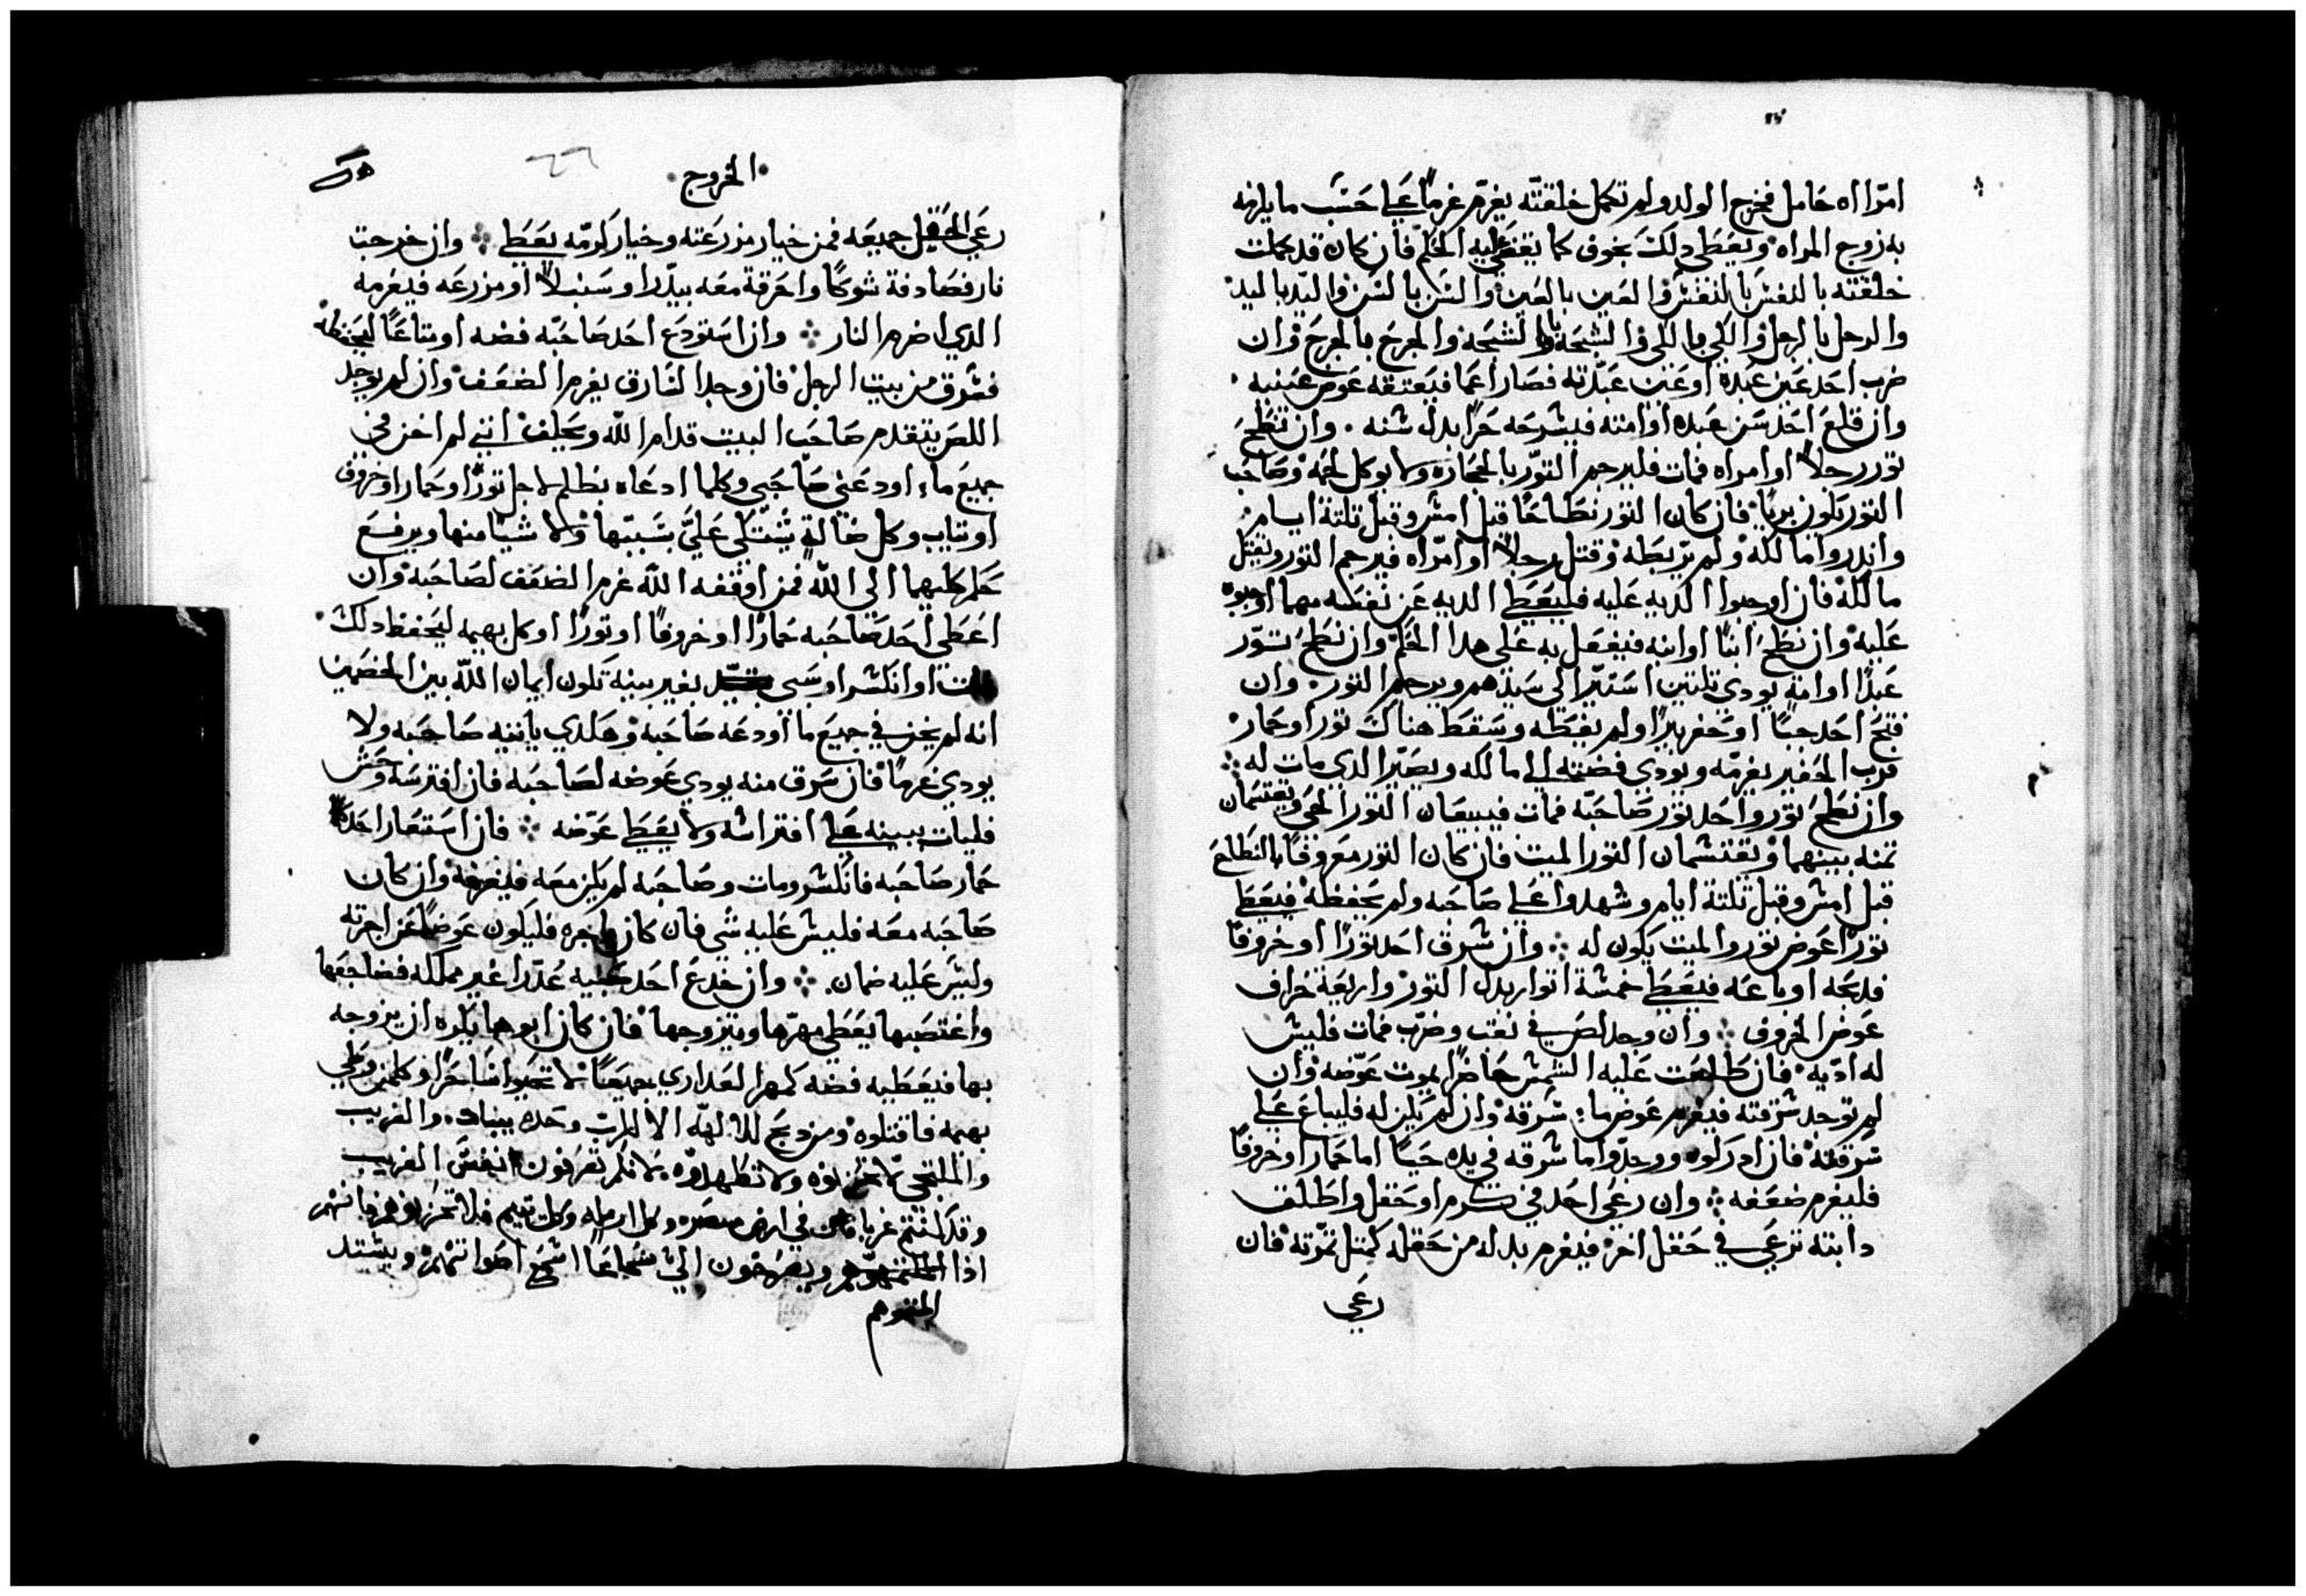 امراه حامل فخرج الولد ولم تكمل خلقته يغرم غرما علي حسب ما يلزمه
به زوج المراه ويعطي دلك بخوف كما يقضي عليه الحكم فان كان قد كملت
خلقته بالنفس بالنفس والعين بالعين والسن بالسن واليد باليد
والرجل بالرجل والكي بالكي والشجه بالشجه والجرح بالجرح وان
ضرب احد عين عبده او عين عبدته فصار اعما فيعتقه عوض عينيه
وان قلع احد سن عبده او امته فيسرحه حرا بدل سنه وان نطح
تور رجلا او امراه فمات فليرجم التور بالحجاره ولا يوكل لحمه وصاحب
التور يكون بريا فان كان التور نطاحا قبل امس وقبل تلتة ايام
واندروا مالكه ولم يربطه وقتل رجلا او امراه فيرجم التور ويقتل
مالكه فان اوجبوا الديه عليه فليعطي الديه عن نفسه مهما اوجبوه
عليه وان نطح ابنا او ابنه فيفعل به علي هدا الحكم وان نطح تور
عبدا او امة يودي تلتين استيرا الي سيدهم ويرجم التور وان
فتح احد جبا او حفر بيرا ولم يغطه وسقط هناك تور او حمار
فرب الحفير يغرمه ويودي فضته الي مالكه ويصير الدي مات له
وان نطح تور واحد تور صاحبه فمات فيبيعان التور الحي ويقتسمان
تمنه بينهما ويقتسمان التور الميت فان كان التور معروفا بالنطاح
قبل امس وقبل تلتة ايام وشهدوا علي صاحبه ولم يحفظه فيعطي
تورا عوض تور والميت يكون له وان سرق احد تورا او خروفا
فدبحه او باعه فيعطي خمسة اتوار بدل التور واربعة خراف
عوض الخروف وان وجد لص في نقب وضرب فمات فليس
له اديه فان طلعت عليه الشمس حاضرا يموت عوضه وان
لم توجد سرقته فيغرم عوض ما سرقه وان لم يكن له فليباع علي
سرقته فان ادركوه ووجدوا ما سرقه في يده حيا اما حمار او خروفا
فليغرم ضعفه وان رعي احد في كرم او حقل واطلق
دابته ترعي في حقل اخر فيغرم بدله من حقله كمتل تمرته فان
رعي
الخروج
٦٦
رعي الحقل جميعه فمن خيار مزرعته وخيار كرمه يعطي وان خرجت
نار فصادفة شوكا واحرقة معه بيدرا او سنبلا او مزرعه فيغرمه
الدي اضرم النار وان استودع احد صاحبه فضه او متاعا ليحفظه
فسرق من بيت الرجل فان وجد السارق يغرم الضعف وان لم يوجد
اللص يتقدم صاحب البيت قدام الله ويحلف انني لم اخن في
جميع ما اودعني صاحبي وكلما ادعاه بظلم لاجل تورا او حمارا او خروف
او تياب وكل ضالة يشتكي علي بسببها ولا شيا منها ويرفع
حكم كليهما الي الله فمن اوقفه الله غرم الضعف لصاحبه وان
اعطي احد صاحبه حمارا او خروفا او تورا او كل بهيمه ليحفظ دلك
او انكسر او سبي بغير بينه تكون ايمان الله بين الخصمين
انه لم يخن في جميع ما اودعه صاحبه وهكدي ياتنيه صاحبه ولا
يودي غرما فان سرق منه يودي عوضه لصاحبه فان افترسه وحش
فليات ببينه علي افتراسه ولا يعطي عوضه فان استعار احد
حمار صاحبه فانكسر ومات وصاحبه لم يكن معه فليغرمه وان كان
صاحبه معه فليس عليه شي فان كان باجره فليكون عوضا عن اجرته
وليس عليه ضمان وان خدع احد صبيه عدرا غير مملكه فضاجعها
واغتصبها يعطي مهرها ويتزوجها فان كان ابوها يكره ان يزوجه
بها فيعطيه فضه كمهر العداري جميعا لا تحيوا ساحرا وكلمن وطي
بهيمه فاقتلوه ومن دبح للالهه الا للرب وحده يبيات والغريب
والملتجي لا تحزنوه ولا تظهدوه لانكم تعرفون انفس الغريب
وقد كنتم غربا في ارض مصر وكل ارمله وكل يتيم فلا تحزنوهم فانهم
اذا احزنتموهم ويصرخون الي سماعا اسمع اصواتهم ويشتد